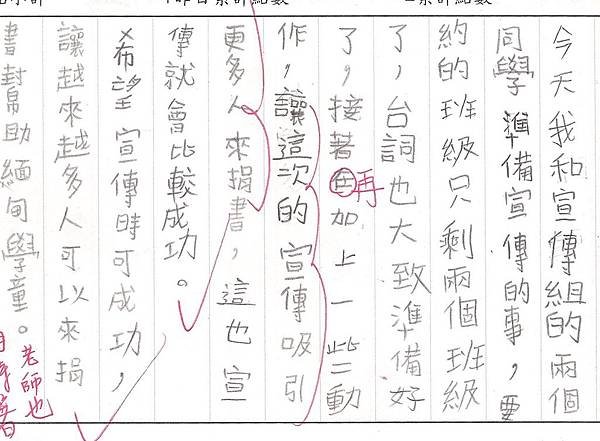 今天我和宣傳組的兩個
同學準備宣傳的事，要
約的班級只剩兩個班級
了，台詞也大致準備好
了，接著在加上一些動
再
作，讓這次的宣傳吸引
更多人來捐書，這也宣
傳就會比較成功。
希望宣傳時可成功，
讓越來越多人可以來捐
書封幫助緬甸學童。
老師也